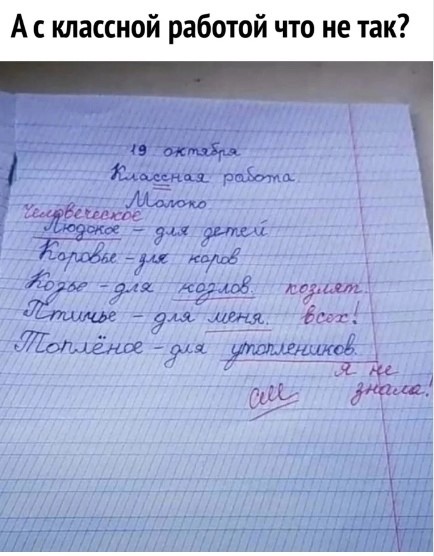 А с классной работой что не так?
19 октября
Классная работа
Молоко
Человеческое
Людское – для детей
Коровье – для коров
Козье – для козлов. козлят.
Птичье – для меня. всех!
Топлёное – для утоплеников.
Я не
см знала!